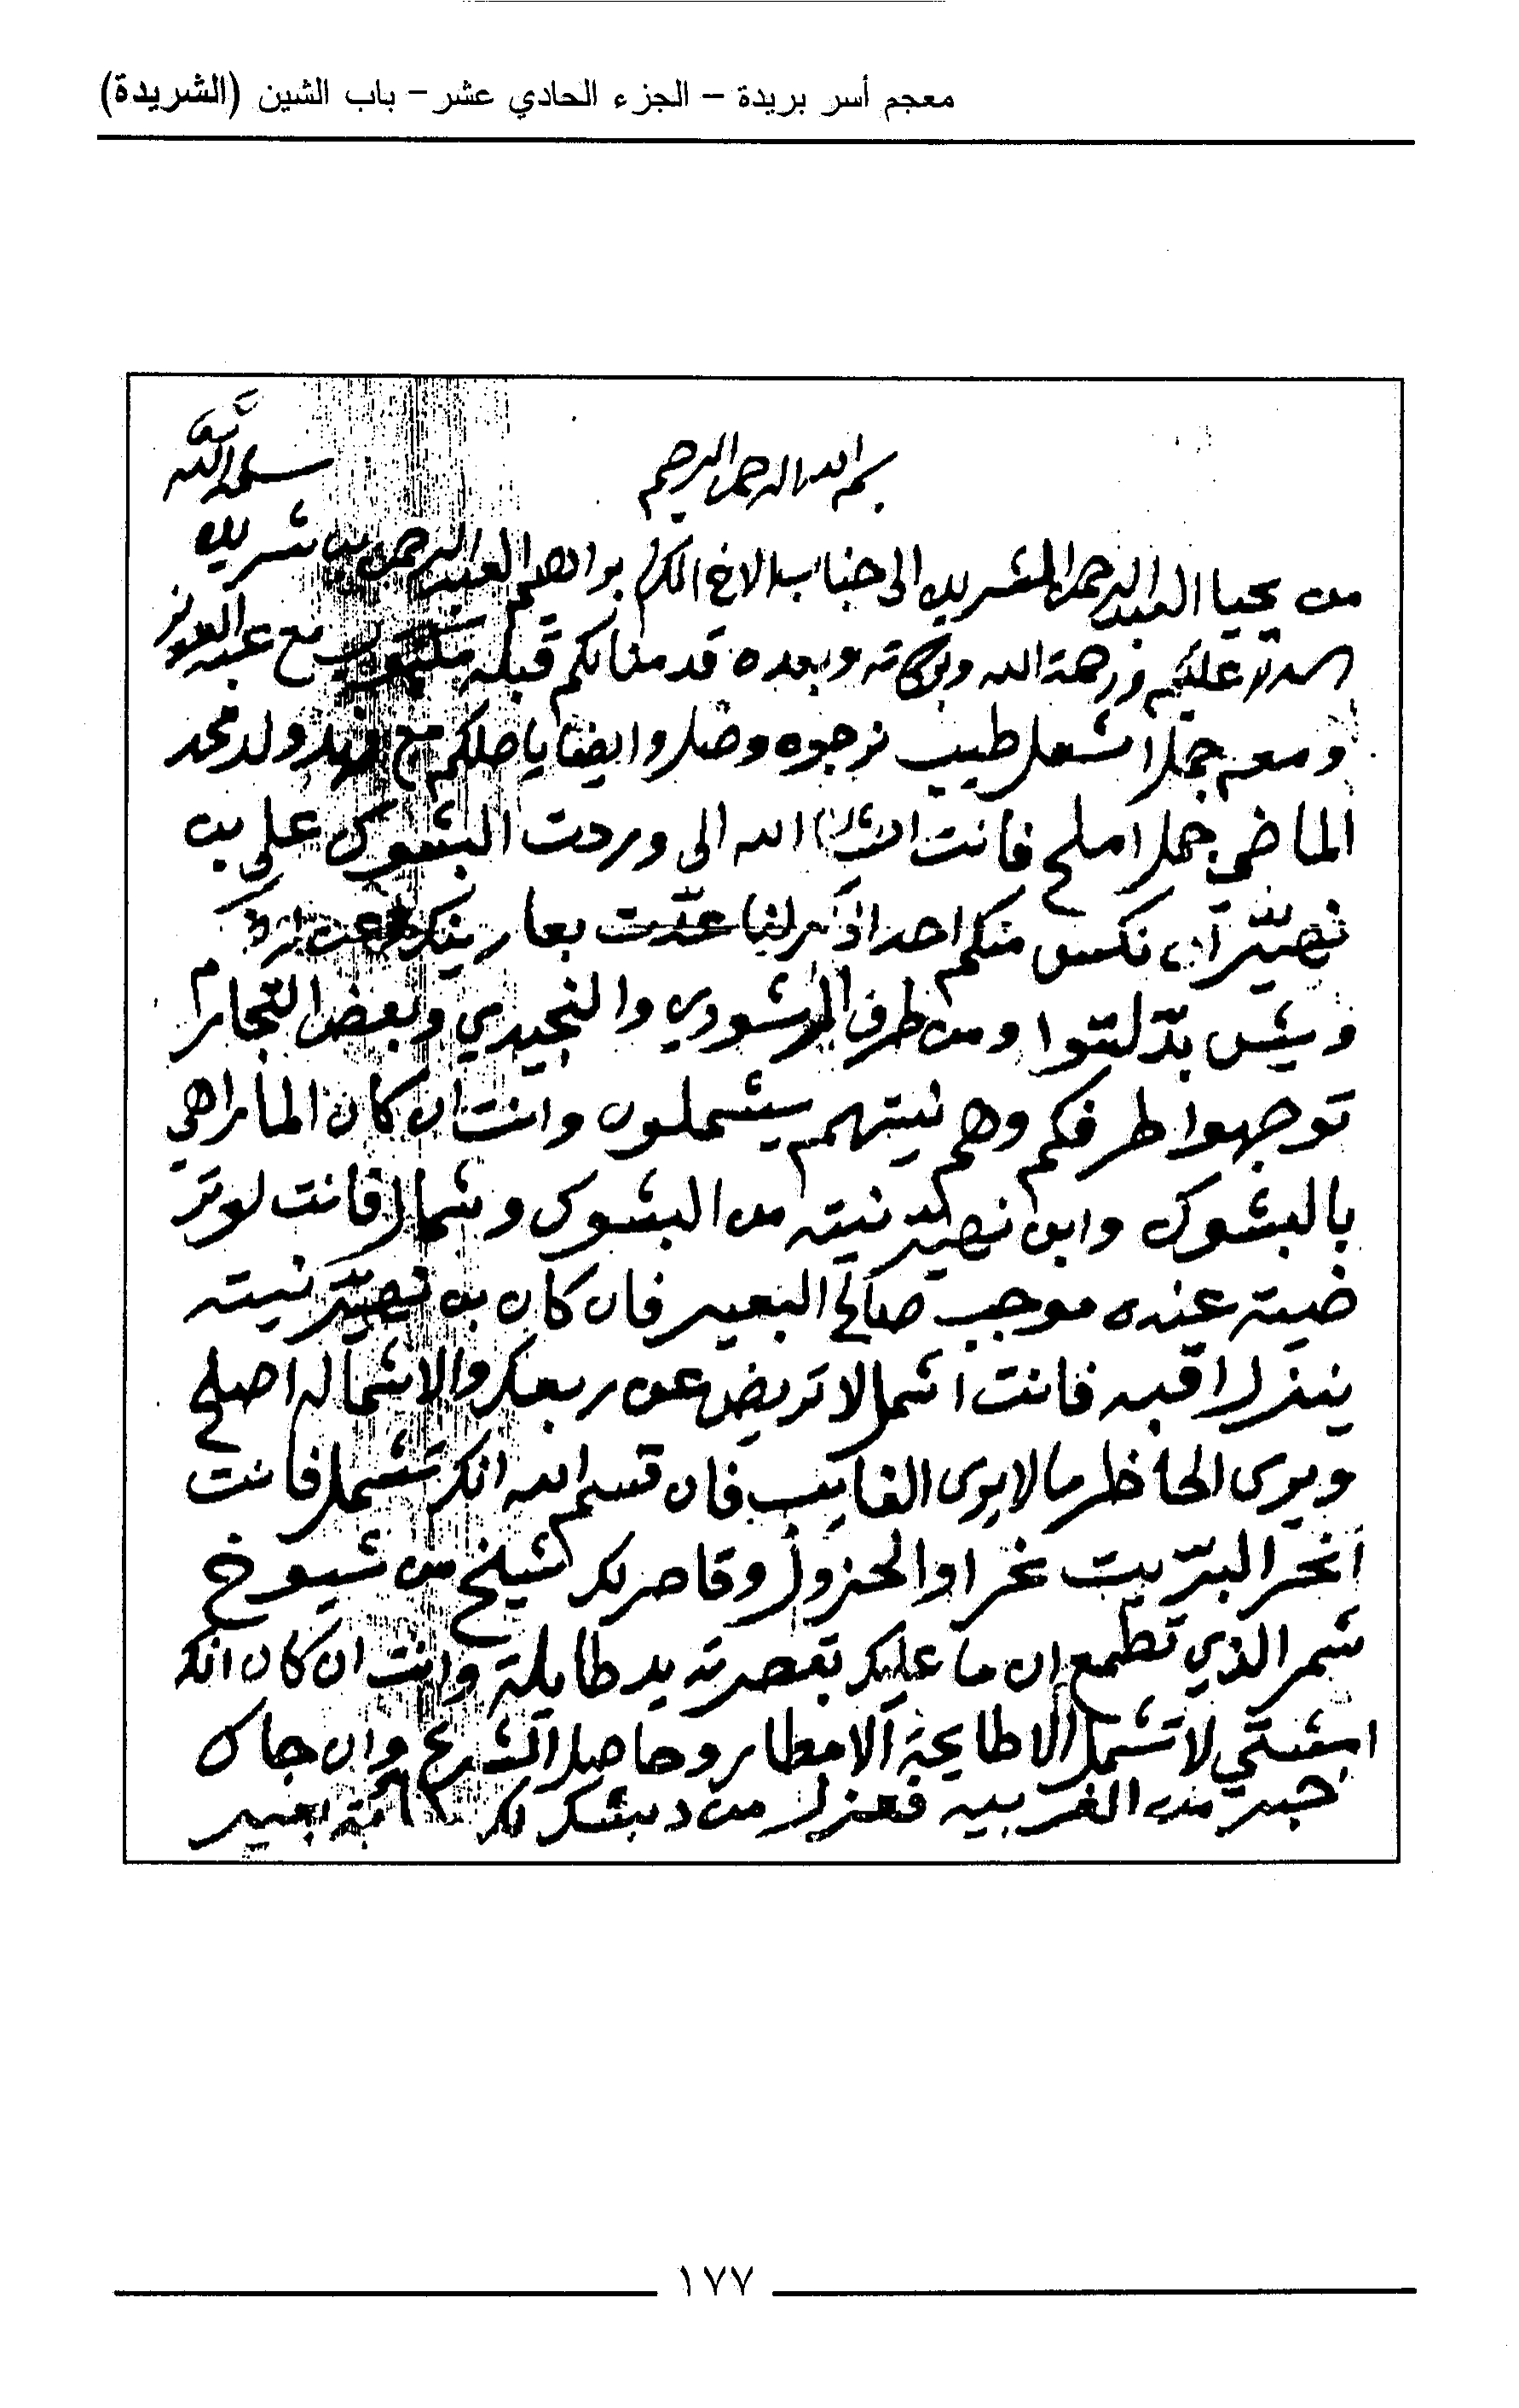 معجم أسر بريدة – الجزء الحادي عشر – باب الشين (الشريدة)
بسم الله الرحمن الرحيم
سلمه الله
من يحيا العبد الرحمن الشريده الى جناب الاخ المكرم براهيم العبد الرحمن بن شريده
السلام عليكم ورحمة الله وبركاته وبعده قد منا لكم قبله مكتوب مع عبد العزيز
ومعه جملا اشعل طيب نرجوه وصلر وايضا ياصلكم مع فهد ولد محمد
الماضي جملا املح فانت انشا الله الى وردت البشوك على بن
نصيّر ان نكس منكم احد اذكر لنا عدّت بعارينك
ويش بدّلتوا ومن طرف المرشودي والنجيدي وبعض التجارم
توجهوا طرفكم وهم نيتهم سيشملون وانت ان كان الما راهي
بالبشوك وابن نصيّر نيته من البشوك وشمال فانت لوتر
ضيته عنده موجب صالح البعير فان كان بن نصيّر نيته
ينزل اقبه فانت اشمل لا تربض عن ربعك والاشماله اصلح
ويرى الحاظر ما لا يرى الغايب فان قسم الله انك تشمل فانت
انحر البرّيت غراو الحزول وقاصر لك شيخ من شيوخ
شمر الذي تطمع ان ما عليك بقصرته يد طايلة وانت ان كان انك
اشتتي لا تشمل الا طايحة الامطار وحاصل الشرع وان جاك
خبر من الغربيه فعزل من دبشك لك مية بعير
١٧٧